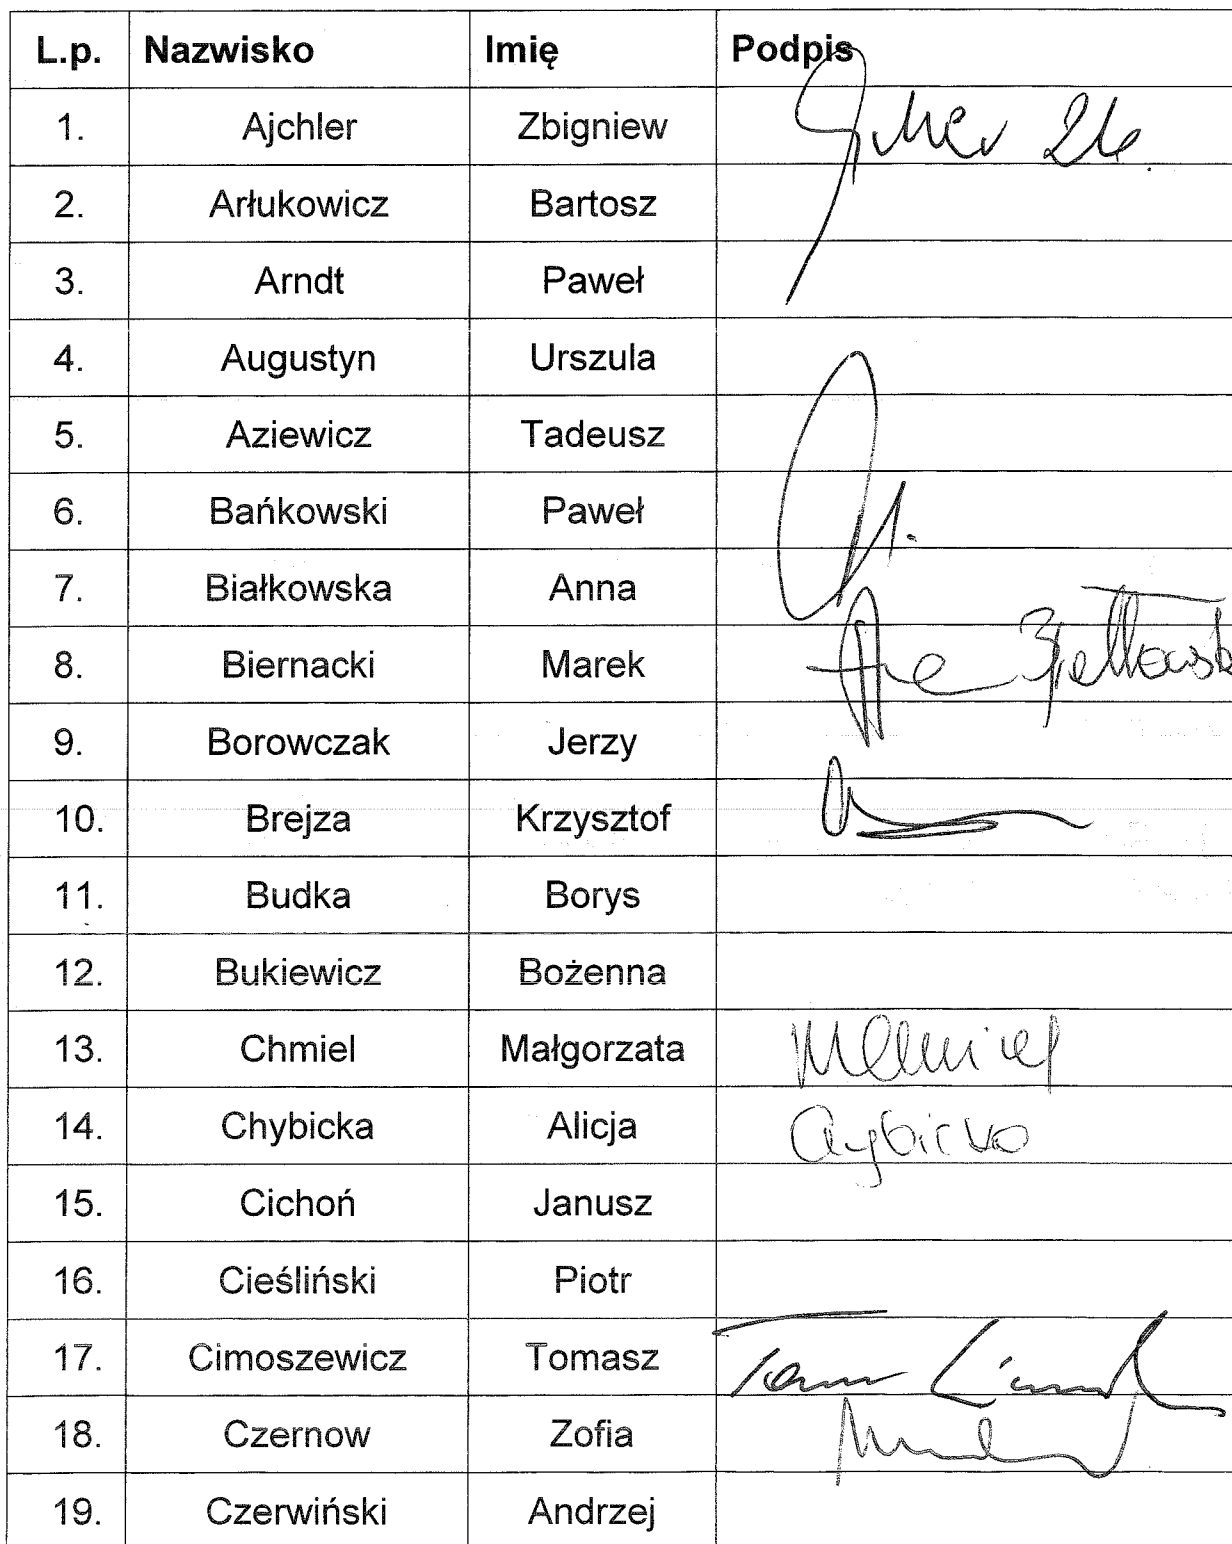 L.p. Nazwisko Imię Podpis
1. Ajchler Zbigniew
2. Arłukowicz Bartosz
3. Arndt Paweł
4. Augustyn Urszula
5. Aziewicz Tadeusz
6. Bańkowski Paweł
7. Białkowska Anna
8. Biernacki Marek
9. Borowczak Jerzy
10. Brejza Krzysztof
11. Budka Borys
12. Bukiewicz Bożenna
13. Chmiel Małgorzata
14. Chybicka Alicja
15. Cichoń Janusz
16. Cieśliński Piotr
17. Cimoszewicz Tomasz
18. Czernow Zofia
19. Czerwiński Andrzej